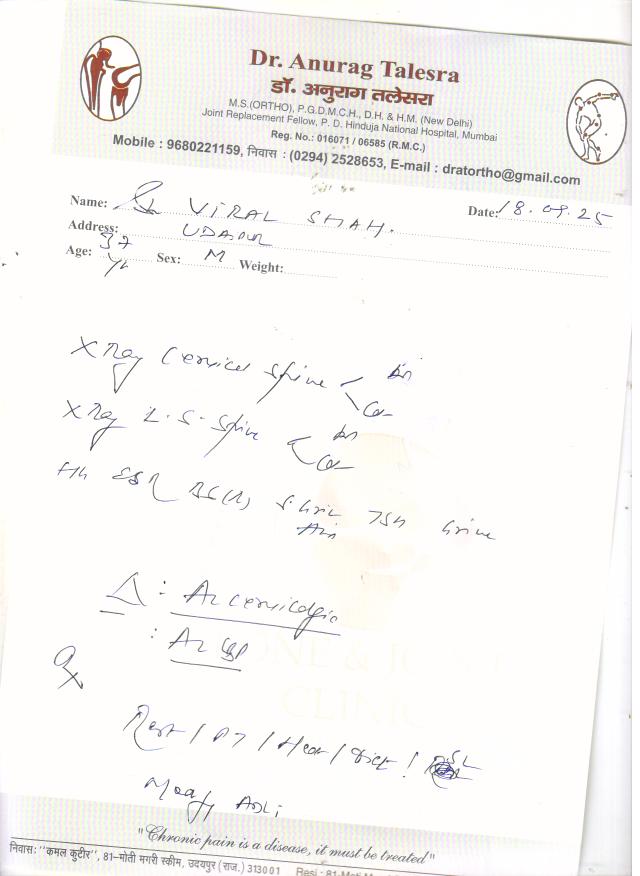 Dr. Anurag Talesra
डॉ. अनुराग तलेसरा
M.S.(ORTHO), P.G.D.M.C.H., D.H. & H.M. (New Delhi)
Joint Replacement Fellow, P. D. Hinduja National Hospital, Mumbai
Reg. No.: 016071 / 06585 (R.M.C.)
Mobile : 9680221159, निवास : (0294) 2528653, E-mail : dratortho@gmail.com
Name: VIRAL SHAH. Date: 18.09.25
Address: UDAIPUR
Age: 37 Yr Sex: M Weight:
X Ray Cervical Spine
X Ray L.S. Spine
Hb ESR TSH Urine
Δ : Ac cervicalgia
: Ac
Rx
BONE & JOINT
CLINIC
Rest / PT / Heat / Diet /
"Chronic pain is a disease, it must be treated"
निवास: "कमल कुटीर", 81-मोती मगरी स्कीम, उदयपुर (राज.) 313001